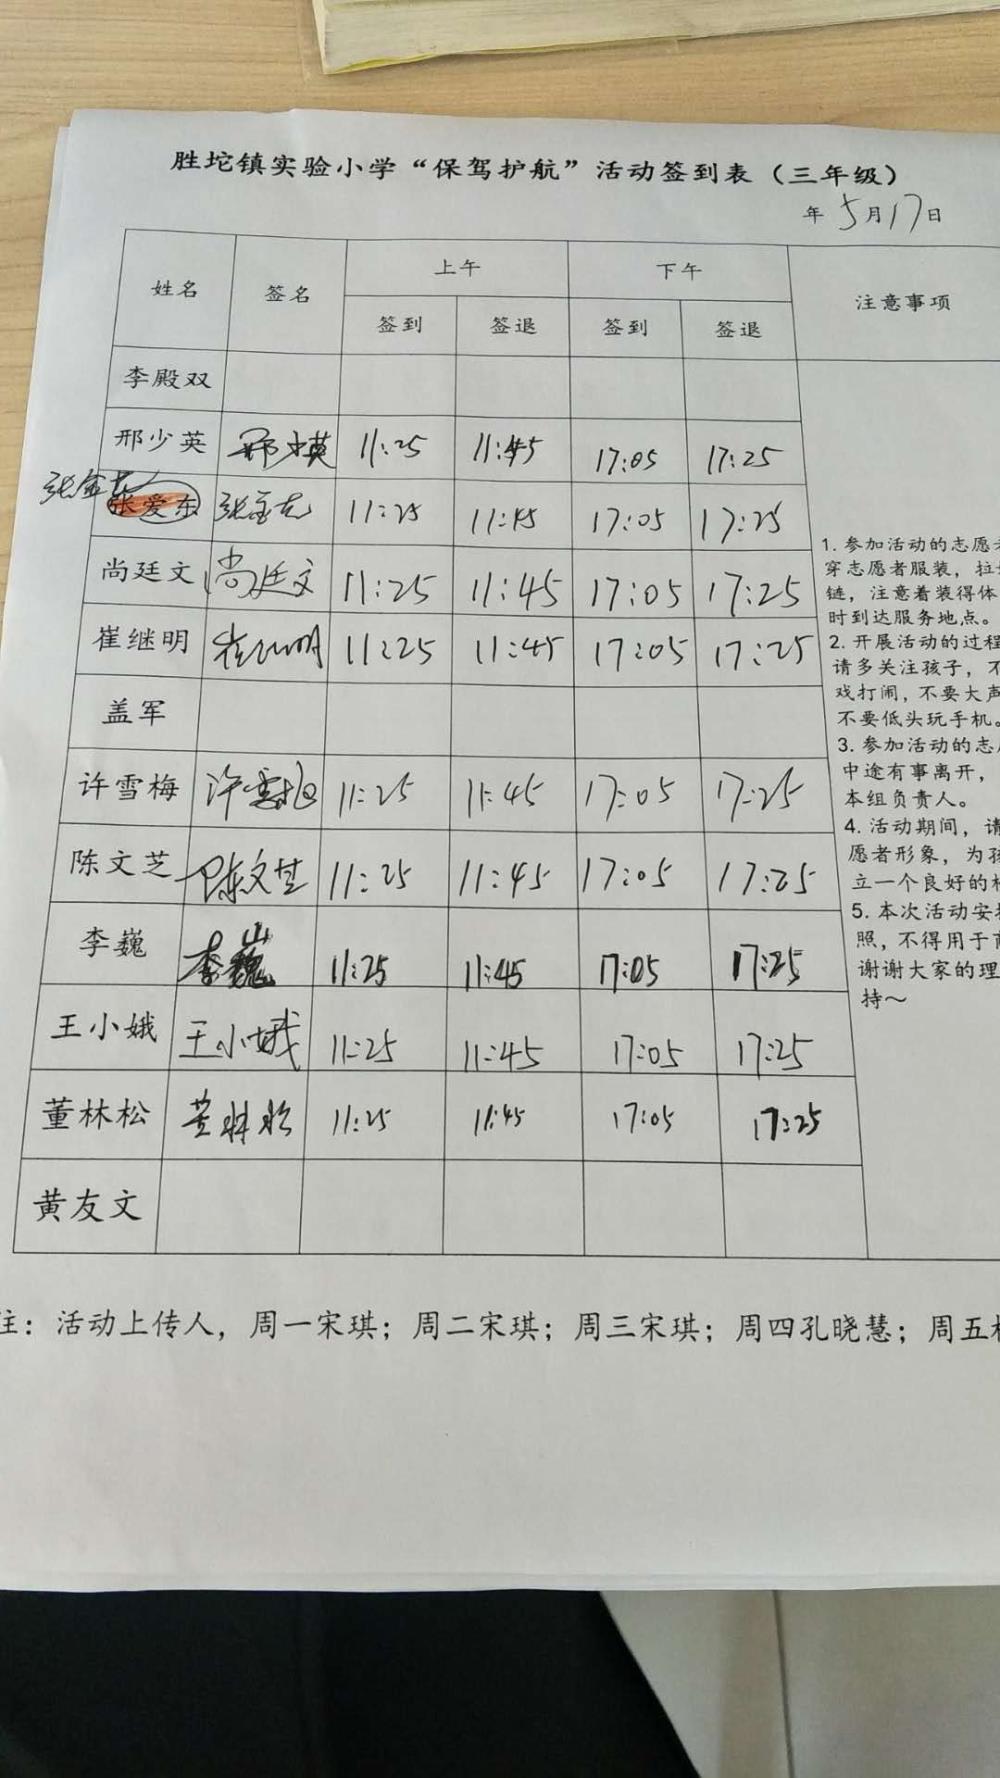 胜坨镇实验小学“保驾护航”活动签到表（三年级）
年 5月17日
姓名 签名 上午 下午 注意事项
签到 签退 签到 签退
李殿双
邢少英 邢少英 11:25 11:45 17:05 17:25
张爱东 11:25 11:45 17:05 17:25
尚廷文 尚廷文 11:25 11:45 17:05 17:25
崔继明 崔继明 11:25 11:45 17:05 17:25
盖军
许雪梅 许雪梅 11:25 11:45 17:05 17:25
陈文芝 陈文芝 11:25 11:45 17:05 17:25
李巍 李巍 11:25 11:45 17:05 17:25
王小娥 王小娥 11:25 11:45 17:05 17:25
董林松 董林松 11:25 11:45 17:05 17:25
黄友文
1. 参加活动的志愿
穿志愿者服装，拉
链，注意着装得体
时到达服务地点。
2. 开展活动的过程
请多关注孩子，不
戏打闹，不要大声
不要低头玩手机。
3. 参加活动的志
中途有事离开，
本组负责人。
4. 活动期间，请
愿者形象，为孩
立一个良好的
5. 本次活动安
照，不得用于
谢谢大家的理
持～
注：活动上传人，周一宋琪；周二宋琪；周三宋琪；周四孔晓慧；周五